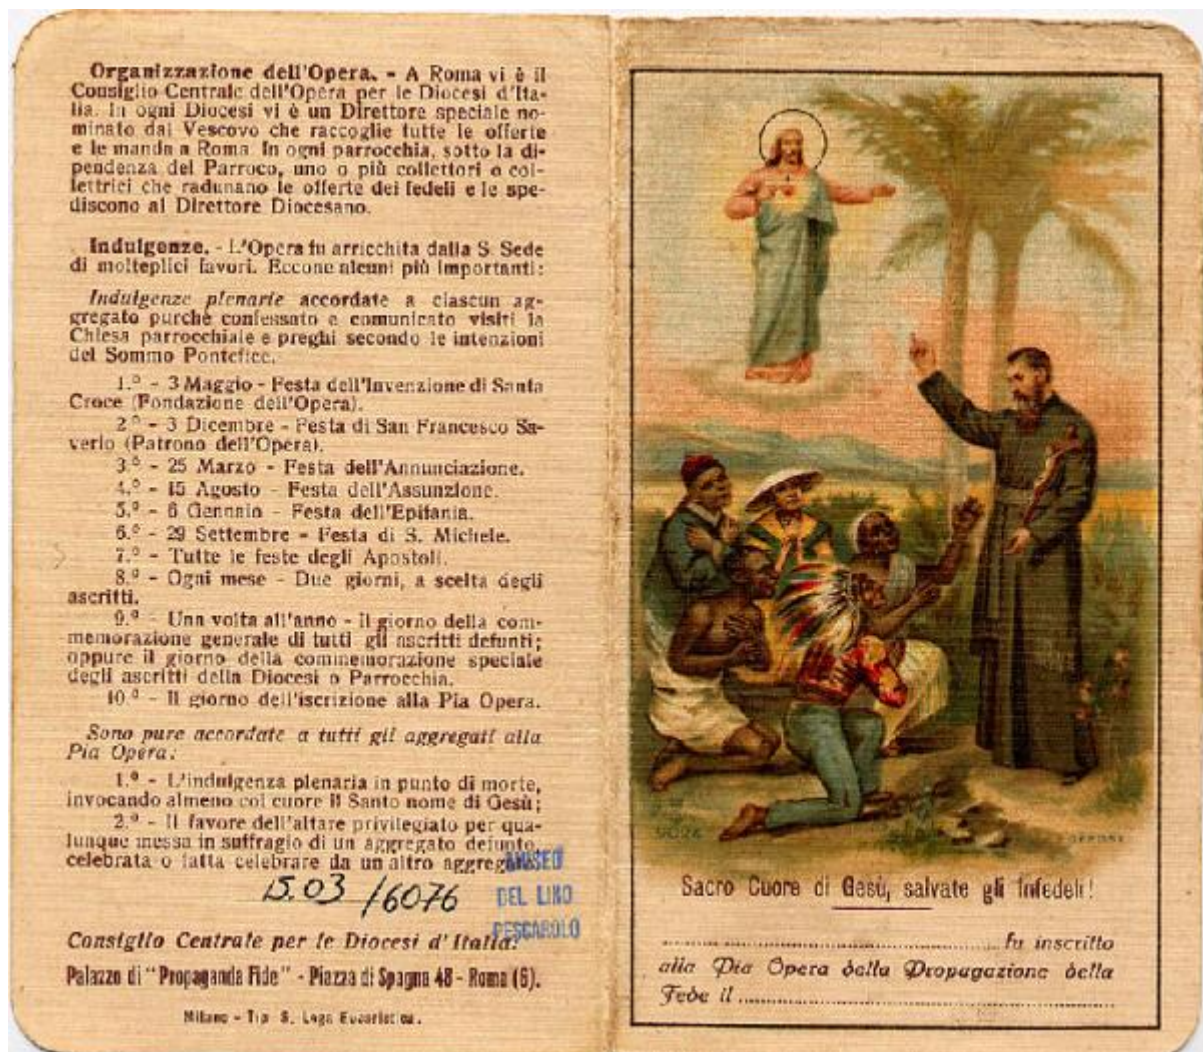 Organizzazione dell'Opera. - A Roma vi è il
Consiglio Centrale dell'Opera per le Diocesi d'Ita-
lia. In ogni Diocesi vi è un Direttore speciale no-
minato dal Vescovo che raccoglie tutte le offerte
e le manda a Roma. In ogni parrocchia, sotto la di-
pendenza del Parroco, uno o più collettori o col-
lettrici che radunano le offerte dei fedeli e le spe-
discono al Direttore Diocesano.
Indulgenze. - L'Opera fu arricchita dalla S. Sede
di molteplici favori. Eccone alcuni più importanti:
Indulgenze plenarie accordate a ciascun ag-
gregato purchè confessato e comunicato visiti la
Chiesa parrocchiale e preghi secondo le intenzioni
del Sommo Pontefice.
1.º - 3 Maggio - Festa dell'Invenzione di Santa
Croce (Fondazione dell'Opera).
2.º - 3 Dicembre - Festa di San Francesco Sa-
verio (Patrono dell'Opera).
3.º - 25 Marzo - Festa dell'Annunciazione.
4.º - 15 Agosto - Festa dell'Assunzione.
5.º - 6 Gennaio - Festa dell'Epifania.
6.º - 29 Settembre - Festa di S. Michele.
7.º - Tutte le feste degli Apostoli.
8.º - Ogni mese - Due giorni, a scelta degli
ascritti.
9.º - Una volta all'anno - il giorno della com-
memorazione generale di tutti gli ascritti defunti;
oppure il giorno della commemorazione speciale
degli ascritti della Diocesi o Parrocchia.
10.º - Il giorno dell'iscrizione alla Pia Opera.
Sono pure accordate a tutti gli aggregati alla
Pia Opera:
1.º - L'indulgenza plenaria in punto di morte,
invocando almeno col cuore il Santo nome di Gesù;
2.º - Il favore dell'altare privilegiato per qua-
lunque messa in suffragio di un aggregato defunto,
celebrata o fatta celebrare da un altro aggregato.
15.03/6076
MUSEO
DEL LINO
PESCAROLO
Consiglio Centrale per le Diocesi d'Italia:
Palazzo di "Propaganda Fide" - Piazza di Spagna 48 - Roma (6).
Milano - Tip. S. Lega Eucaristica.
Sacro Cuore di Gesù, salvate gli Infedeli!
fu inscritto
alla Pia Opera della Propagazione della
Fede il